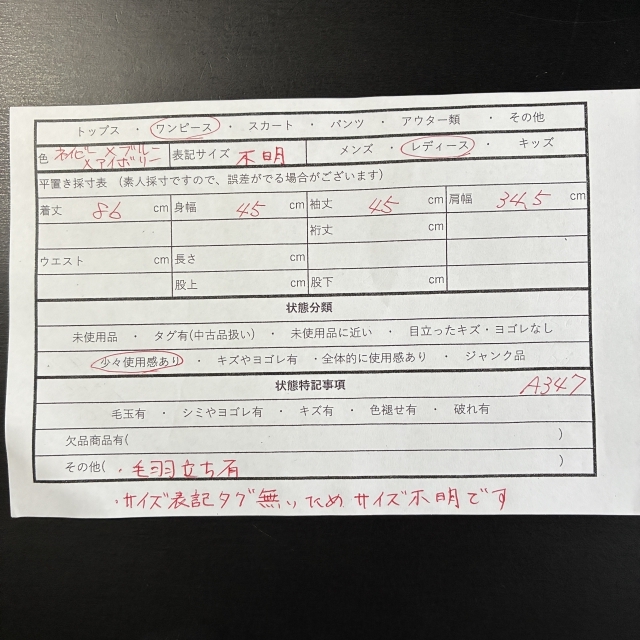 トップス ・ ワンピース ・ スカート ・ パンツ ・ アウター類 ・ その他
色 ネイビー×ブルー×アイボリー 表記サイズ 不明 メンズ ・ レディース ・ キッズ
平置き採寸表 (素人採寸ですので、誤差がでる場合がございます)
着丈 86 cm 身幅 45 cm 袖丈 45 cm 肩幅 34.5 cm
裄丈 cm
ウエスト cm 長さ cm
股上 cm 股下 cm
状態分類
未使用品 ・ タグ有(中古品扱い) ・ 未使用品に近い ・ 目立ったキズ・ヨゴレなし
少々使用感あり ・ キズやヨゴレ有 ・全体的に使用感あり ・ ジャンク品
状態特記事項 A347
毛玉有 ・ シミやヨゴレ有 ・ キズ有 ・ 色褪せ有 ・ 破れ有
欠品商品有( )
その他( ・毛羽立ち有 )
・サイズ表記タグ無いため サイズ不明です